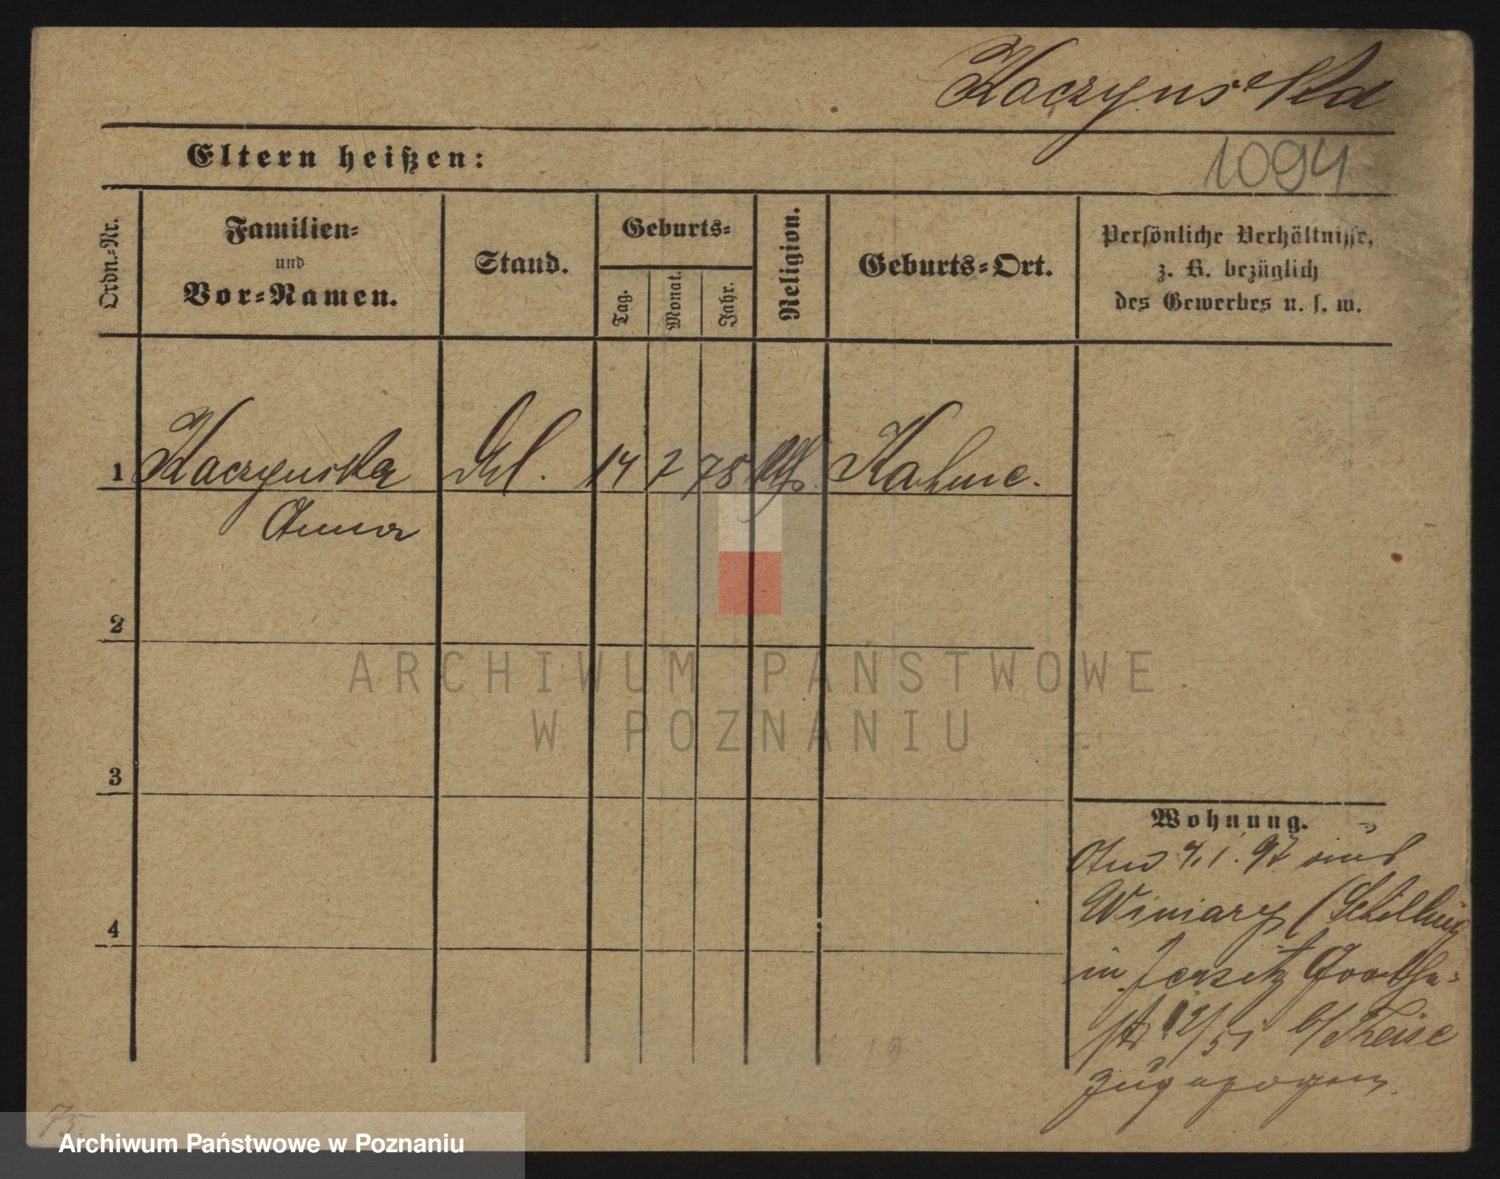 Kaczynska
1094
Eltern heißen:
Ordn.-Nr.
Familien-
und
Vor-Namen.
Stand.
Geburts-
Tag.
Monat.
Jahr.
Religion.
Geburts-Ort.
Persönliche Verhältnisse,
z. B. bezüglich
des Gewerbes u. s. w.
1 Kaczynska 14 7 75 Kahme.
Anna
2
3
4
ARCHIWUM PAŃSTWOWE
W POZNANIU
Wohnung.
Am 4.1.97 aus
Winiary (Schilling
in Jersitz Goethe-
str 12/51 b/ Theise
zugezogen.
75
Archiwum Państwowe w Poznaniu